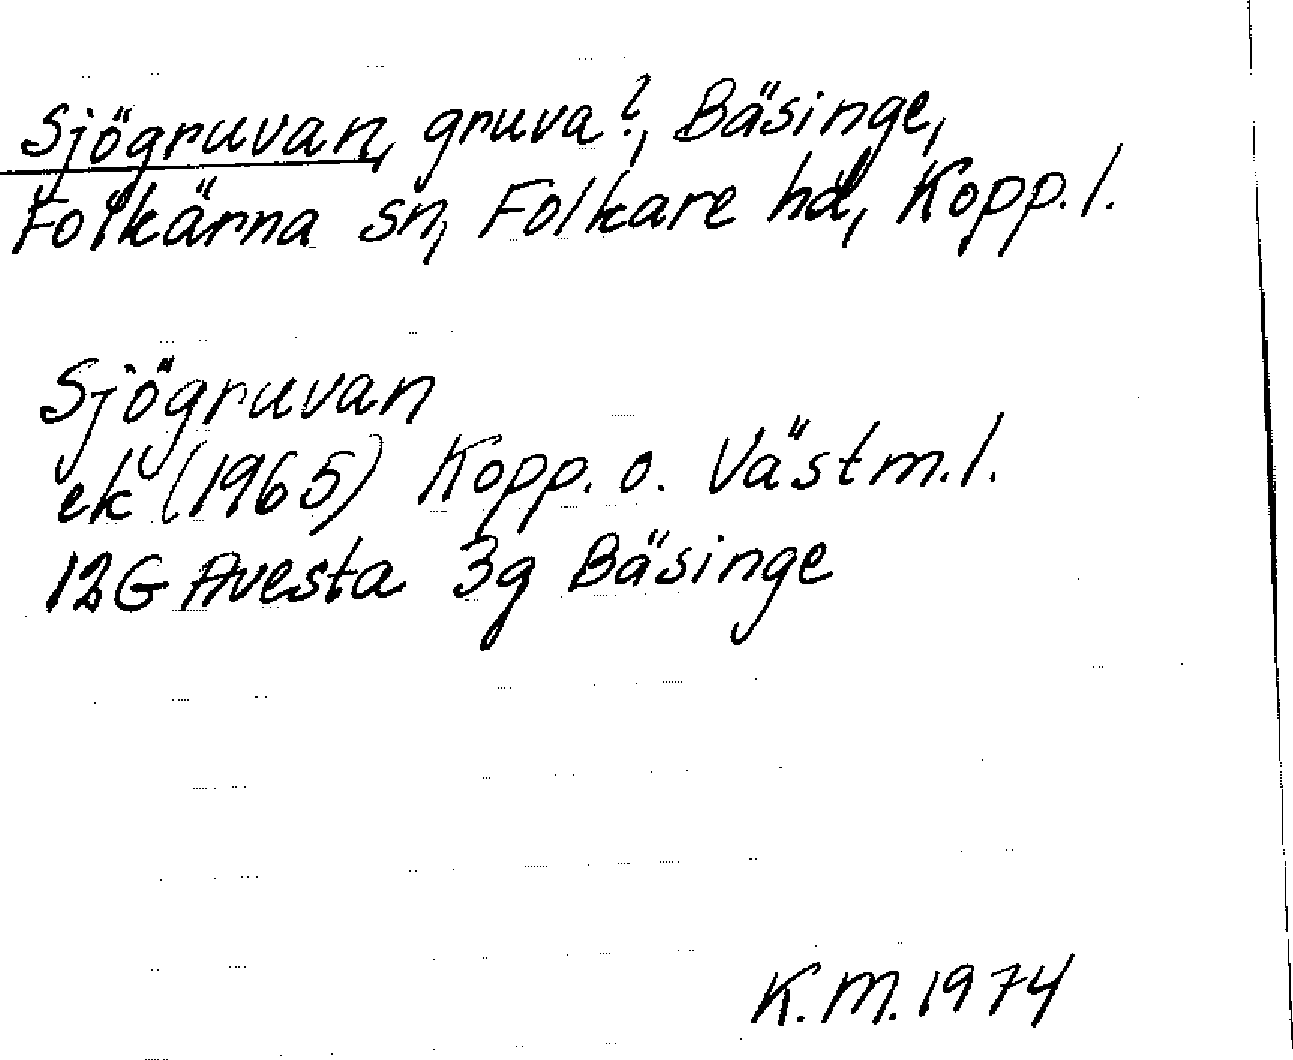 Sjögruvan, gruva?, Bäsinge,
Folkärna sn, Folkare hd, Kopp. l.
Sjögruvan
ek (1965) Kopp. o. Västm. l.
12G Avesta 3g Bäsinge
K.M. 1974